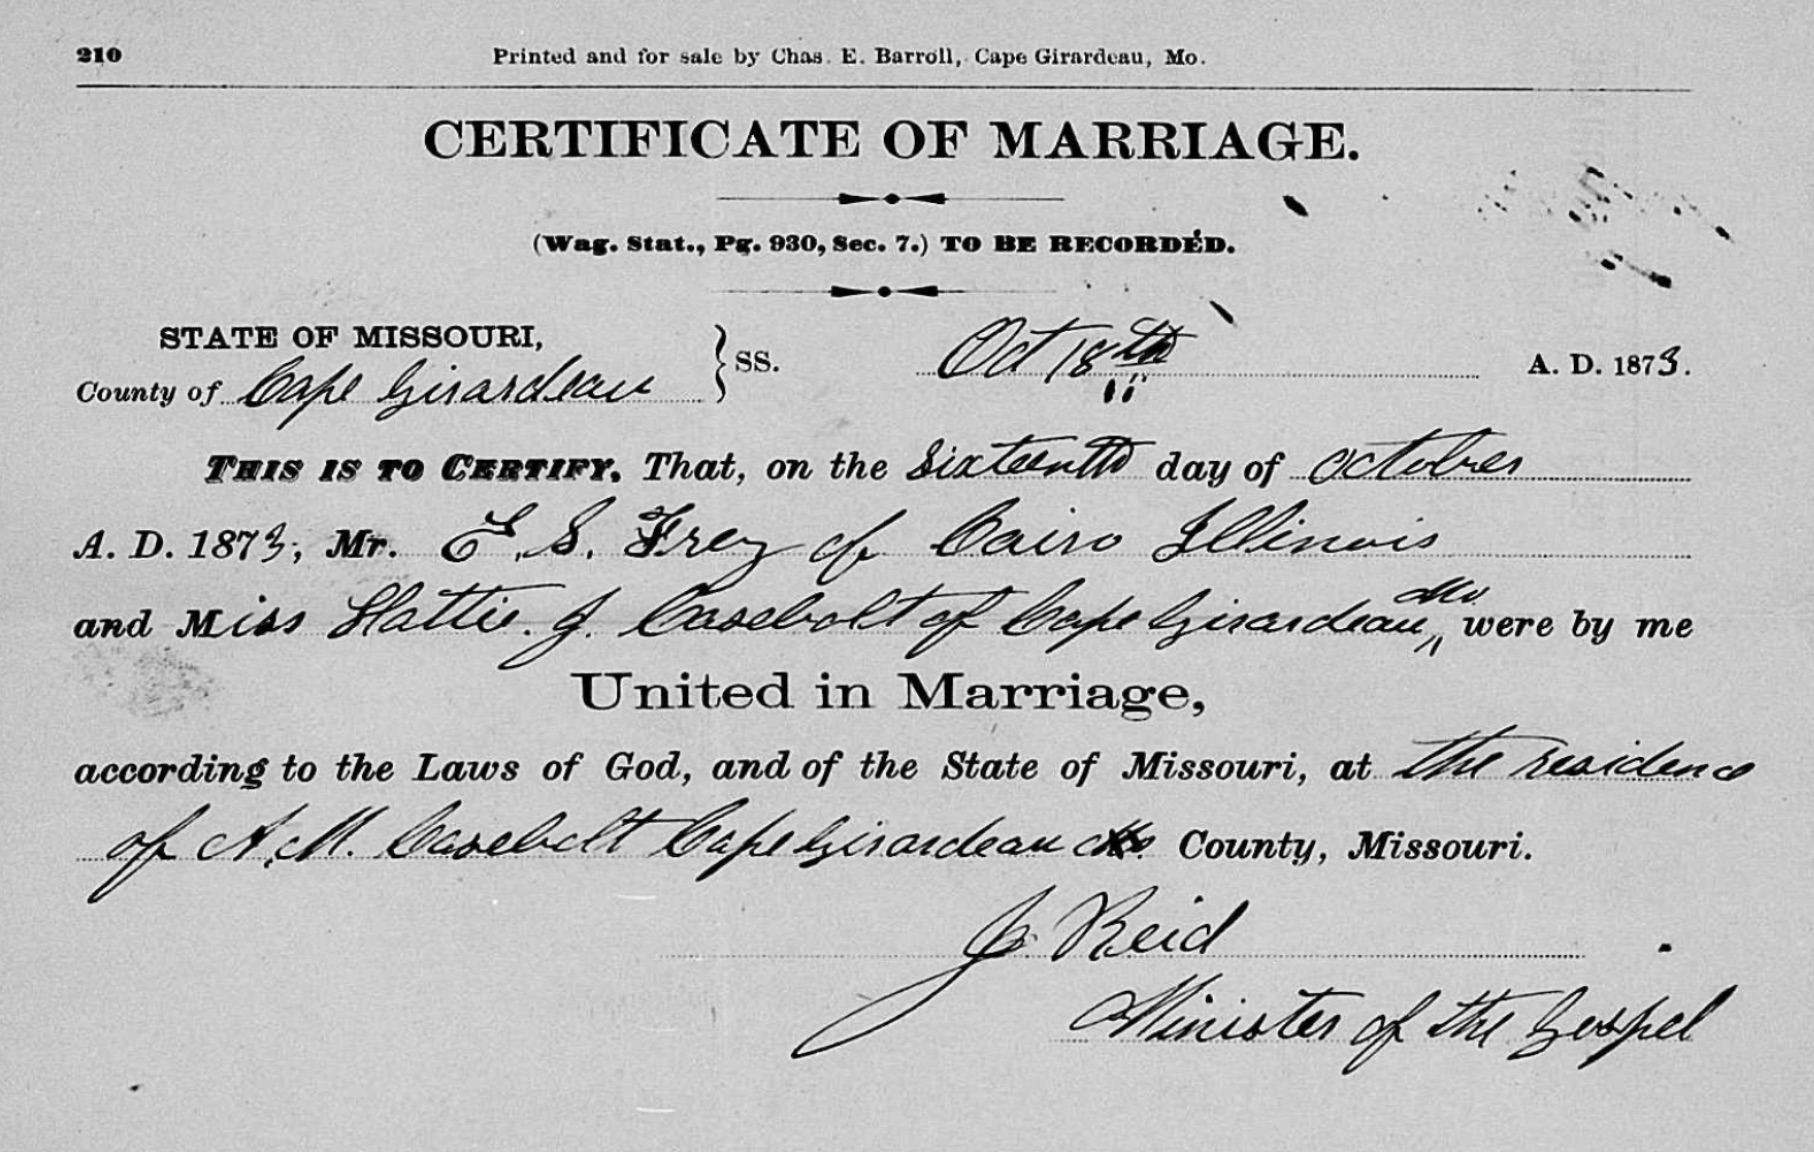 210 Printed and for sale by Chas. E. Barroll, Cape Girardeau, Mo.
CERTIFICATE OF MARRIAGE.
(Wag. Stat., Pg. 930, Sec. 7.) TO BE RECORDED.
STATE OF MISSOURI, } SS. Oct 18th A. D. 1873.
County of Cape Girardeau
THIS IS TO CERTIFY, That, on the Sixteenth day of October
A. D. 1873, Mr. E. S. Frey of Cairo Illinois
and Miss Hattie. J. Casebolt of Cape Girardeau ^ Mo were by me
United in Marriage,
according to the Laws of God, and of the State of Missouri, at the residence
of A. M. Casebolt Cape Girardeau Mo. County, Missouri.
J. Reid
Minister of the Gospel